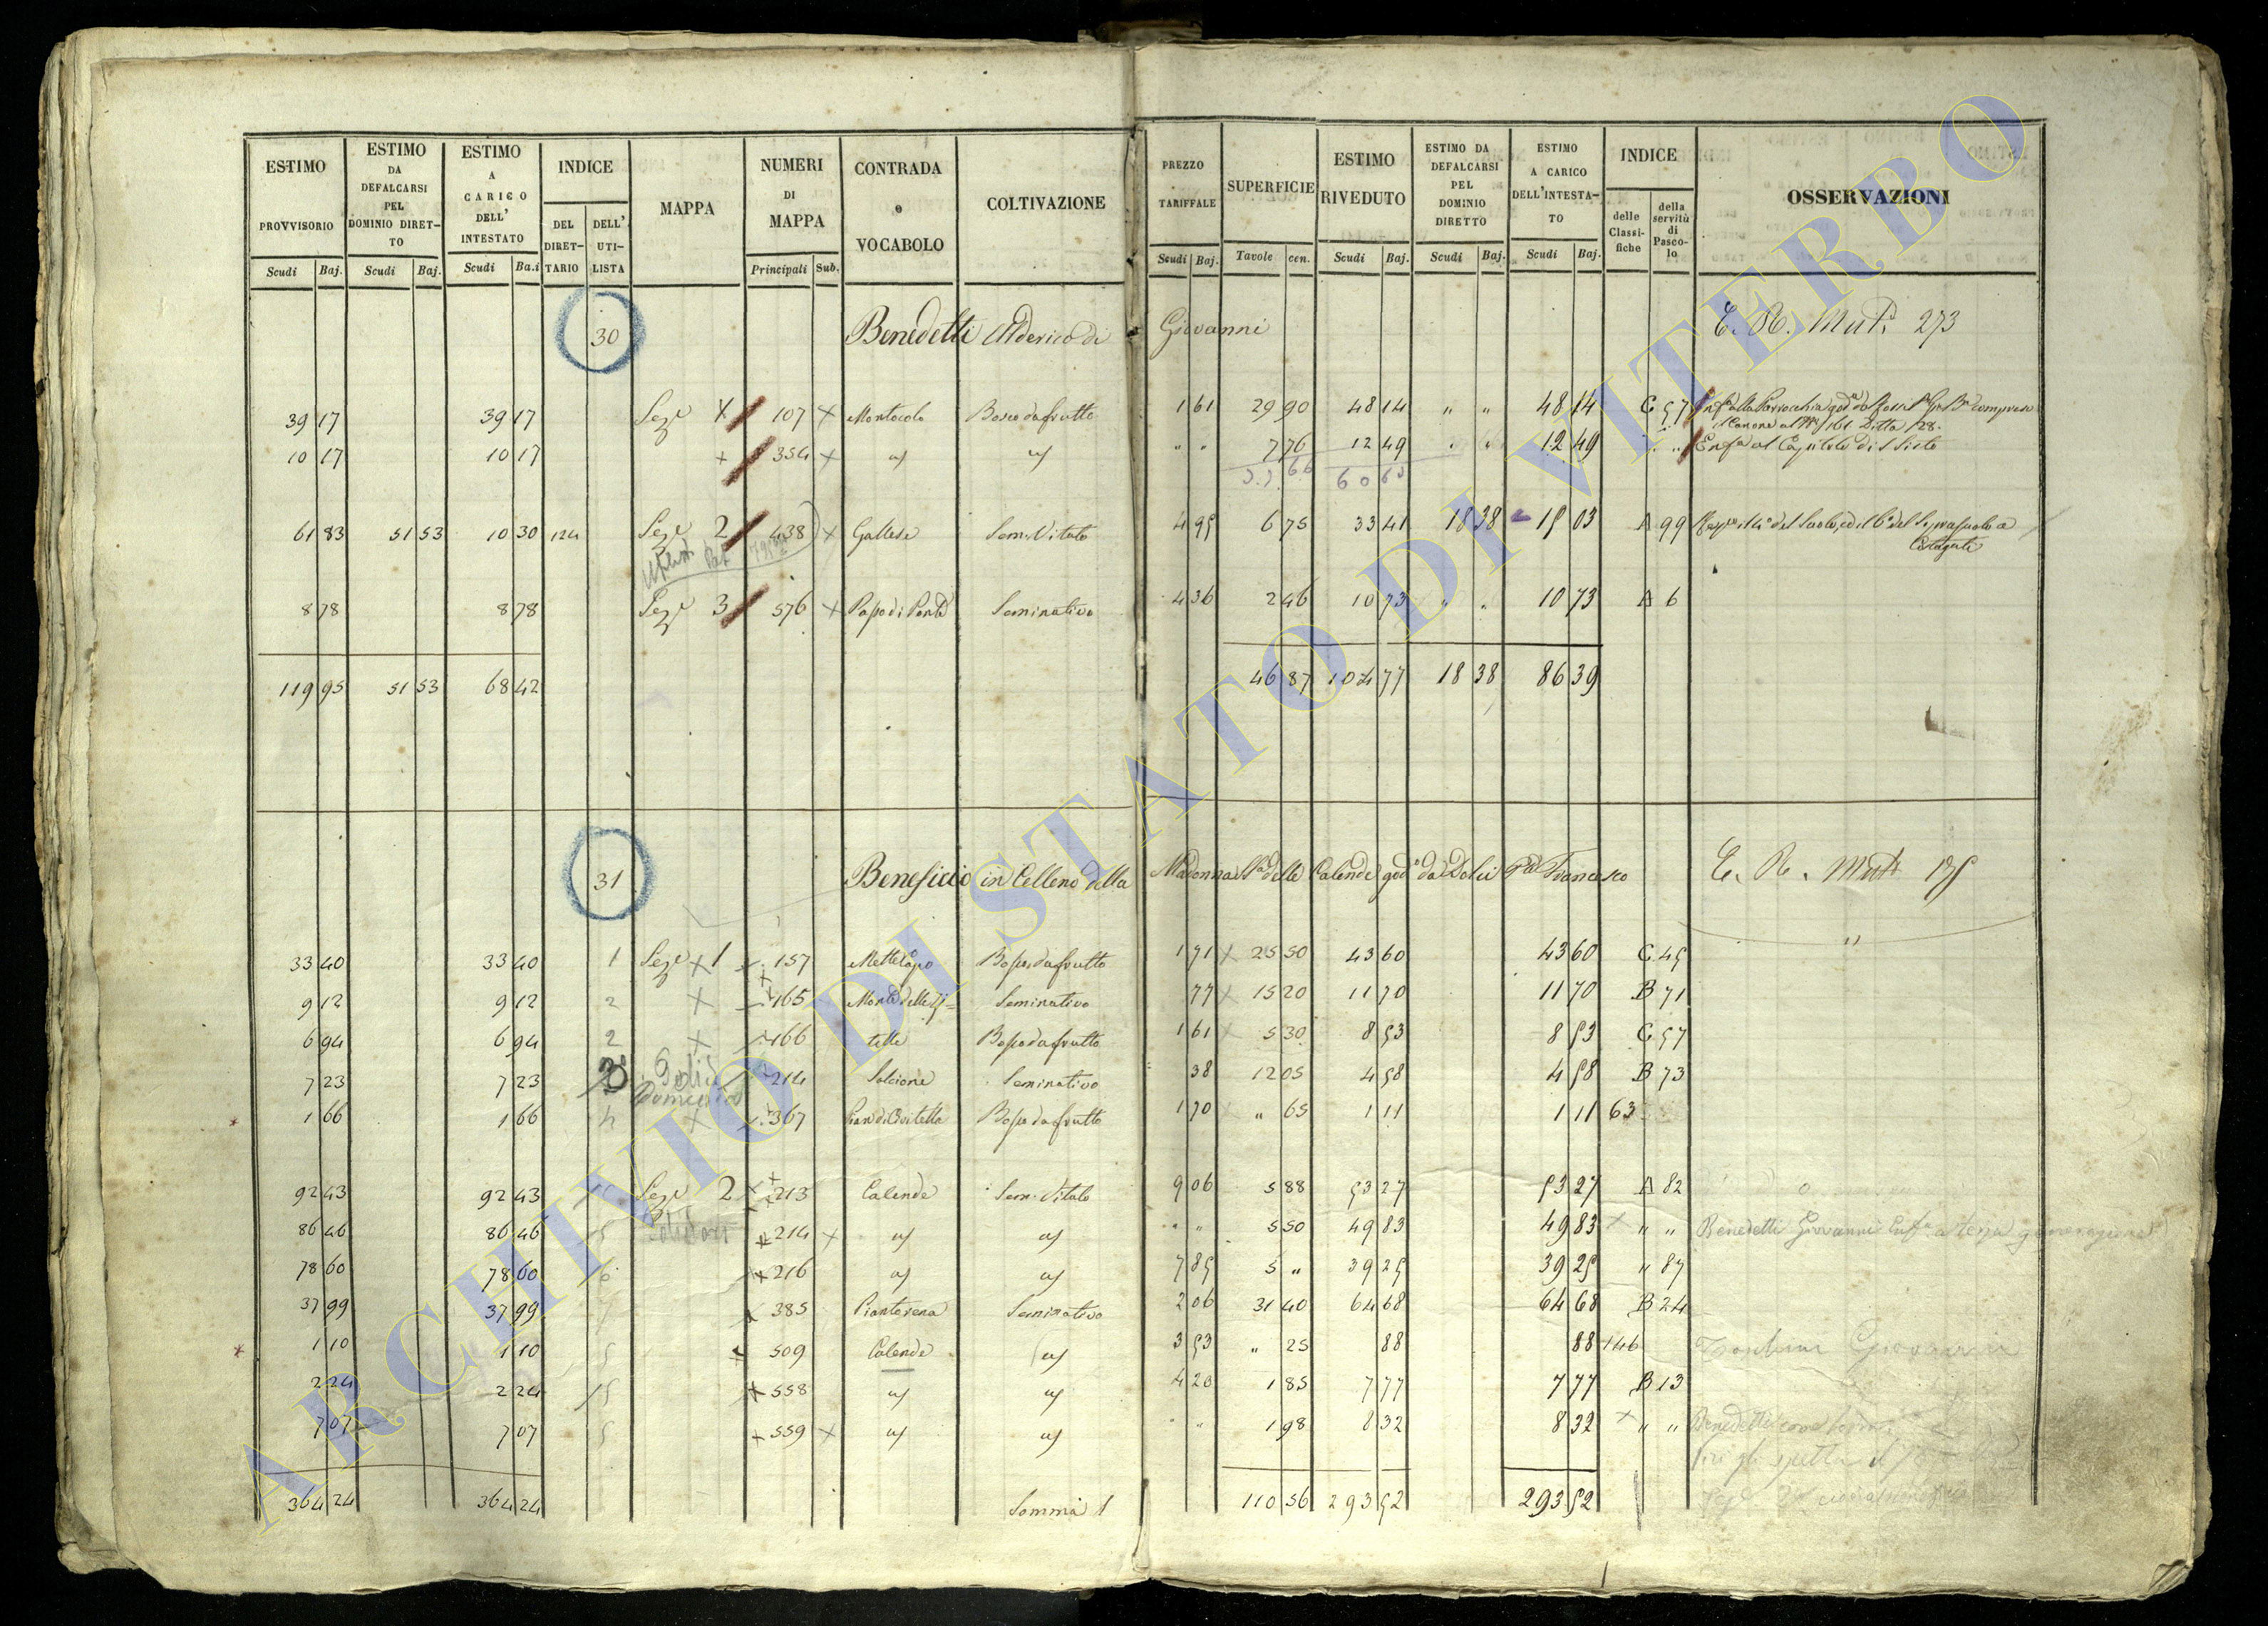 ESTIMO PROVVISORIO Scudi Baj. ESTIMO DA DEFALCARSI PEL DOMINIO DIRETTO Scudi Baj. ESTIMO A CARICO DELL' INTESTATO Scudi Ba.i INDICE DEL DIRETTARIO DELL' UTILISTA MAPPA NUMERI DI MAPPA Principali Sub. CONTRADA e VOCABOLO COLTIVAZIONE PREZZO TARIFFALE Scudi Baj. SUPERFICIE Tavole cen. ESTIMO RIVEDUTO Scudi Baj. ESTIMO DA DEFALCARSI PEL DOMINIO DIRETTO Scudi Baj. ESTIMO A CARICO DELL'INTESTATO Scudi Baj. INDICE delle Classifiche della servitù di Pascolo OSSERVAZIONI
30 Benedetti Alderico di Giovanni E. R. Mut. 273
39 17 39 17 Seze 1 107 Montocolo Bosco da frutto 1 61 29 90 48 14 " " 48 14 C 57
10 17 10 17 354 1 " " 7 76 12 49 " " 12 49 " " Enfa al Capitolo di S Sisto
61 83 51 53 10 30 124 Seze 2 438 Gallese Sem. Vitato 4 95 6 75 33 41 18 38 15 03 A 99
8 78 8 78 Seze 3 576 Passo di Ponte Seminativo 4 36 2 46 10 73 " " 10 73 A 6
119 95 51 53 68 42 46 87 104 77 18 38 86 39
31 Beneficio in Celleno della Madonna SSa delle Calende goda da Dolci Francesco E. R. Mut.
33 40 33 40 1 Seze 1 157 Bosco da frutto 1 71 25 50 43 60 43 60 C 45
9 12 9 12 2 165 Monte delle Zi= Seminativo 77 15 20 11 70 11 70 B 71
6 94 6 94 2 166 telle Bosco da frutto 1 61 5 30 8 53 8 53 C 57
7 23 7 23 3 214 Salcione Seminativo 38 12 05 4 58 4 58 B 73
1 66 1 66 4 367 Pian di Civitella Bosco da frutto 1 70 " 65 1 11 1 11 63
92 43 92 43 Seze 2 213 Calende Sem. Vitato 9 06 5 88 53 27 53 27 A 82
86 46 86 46 5 214 " " 5 50 49 83 49 83 " " Benedetti Giovanni Enfa a terza generazione
78 60 78 60 6 216 7 85 5 " 39 25 39 25 " 87
37 99 37 99 385 Piantarena Seminativo 2 06 31 40 64 68 64 68 B 24
1 10 1 10 5 509 Calende 3 53 " 25 88 88 146 Giovanni
2 24 2 24 5 558 4 20 1 85 7 77 7 77 B 13
7 07 7 07 5 559 1 98 8 32 8 32 " " Benedetti come sopra
364 24 364 24 Somma 1 110 56 293 52 293 52
ARCHIVIO DI STATO DI VITERBO